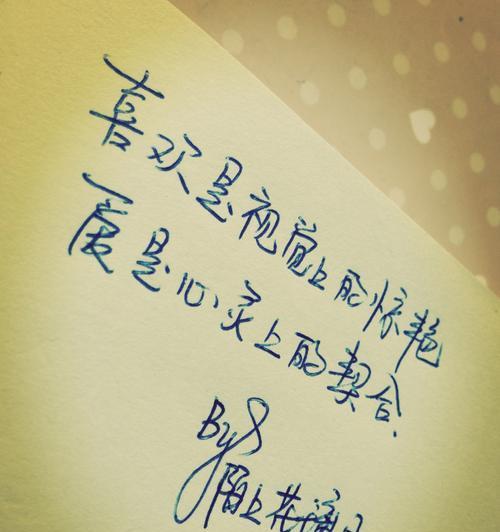 喜欢是视觉上的惊艳
爱是心灵上的契合.
By
陌上花